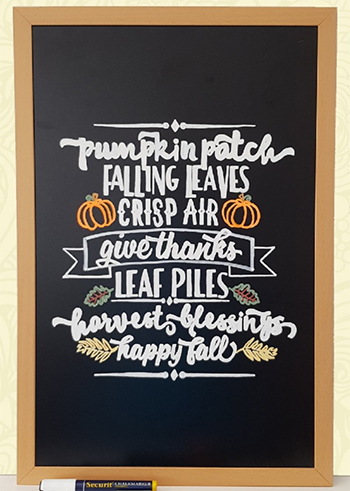 pumpkin patch
FALLING LEAVES
CRISP AIR
give thanks
LEAF PILES
harvest blessings
happy fall
Securit CHALKMARKER